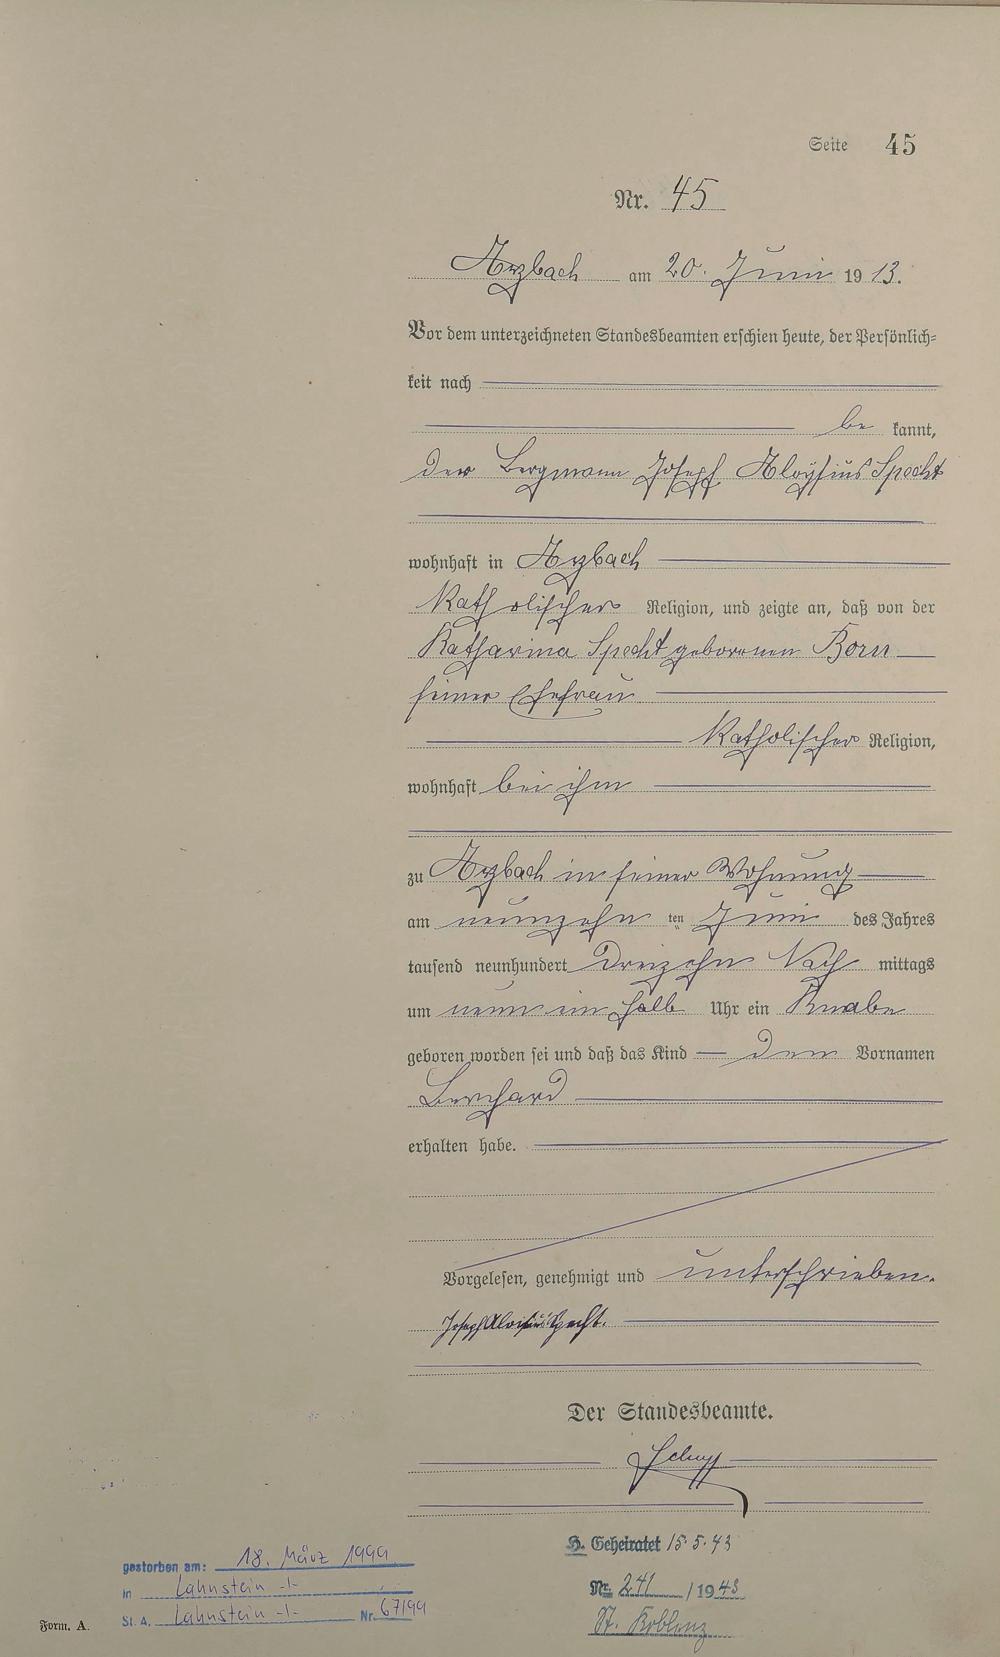 Seite 45
Nr. 45
Arzbach am 20. Juni 1913.
Vor dem unterzeichneten Standesbeamten erschien heute, der Persönlich-
keit nach
be kannt,
der Bergmann Joseph Aloysius Specht
wohnhaft in Arzbach
Katholischer Religion, und zeigte an, daß von der
Katharina Specht geborenen Born
seiner Ehefrau
Katholischer Religion,
wohnhaft bei ihm
zu Arzbach in seiner Wohnung
am neunzehn ten Juni des Jahres
tausend neunhundert Dreizehn Nach mittags
um neun ein halb Uhr ein Knabe
geboren worden sei und daß das Kind den Vornamen
Bernhard
erhalten habe.
Vorgelesen, genehmigt und unterschrieben.
Joseph Aloisius Specht.
Der Standesbeamte.
H. Geheiratet 15.5.43
Nr. 241 / 1943
St. Koblenz
gestorben am: 18. März 1999
in Lahnstein -/-
St. A. Lahnstein -/- Nr. 67/99
Form. A.